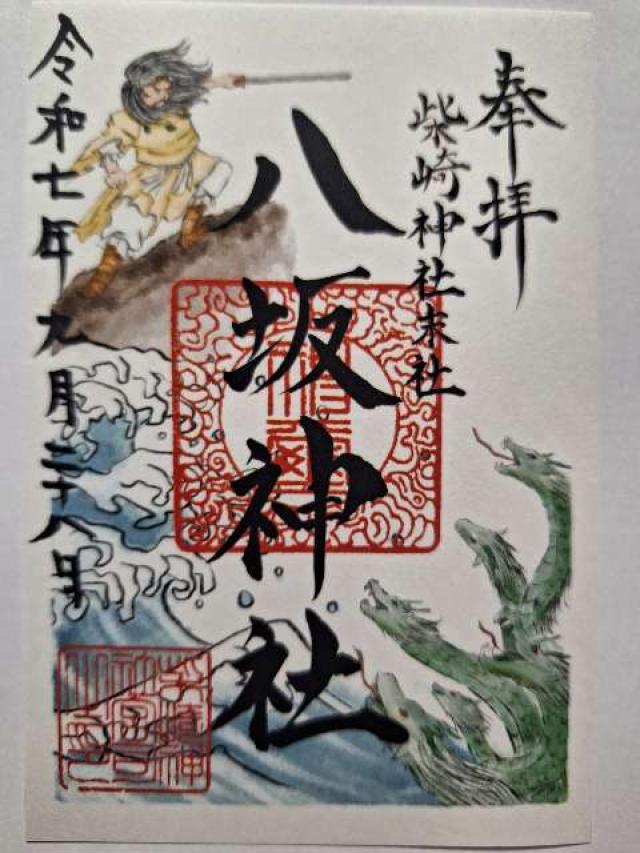 奉拝
柴崎神社末社
八坂神社
令和七年九月二十八日